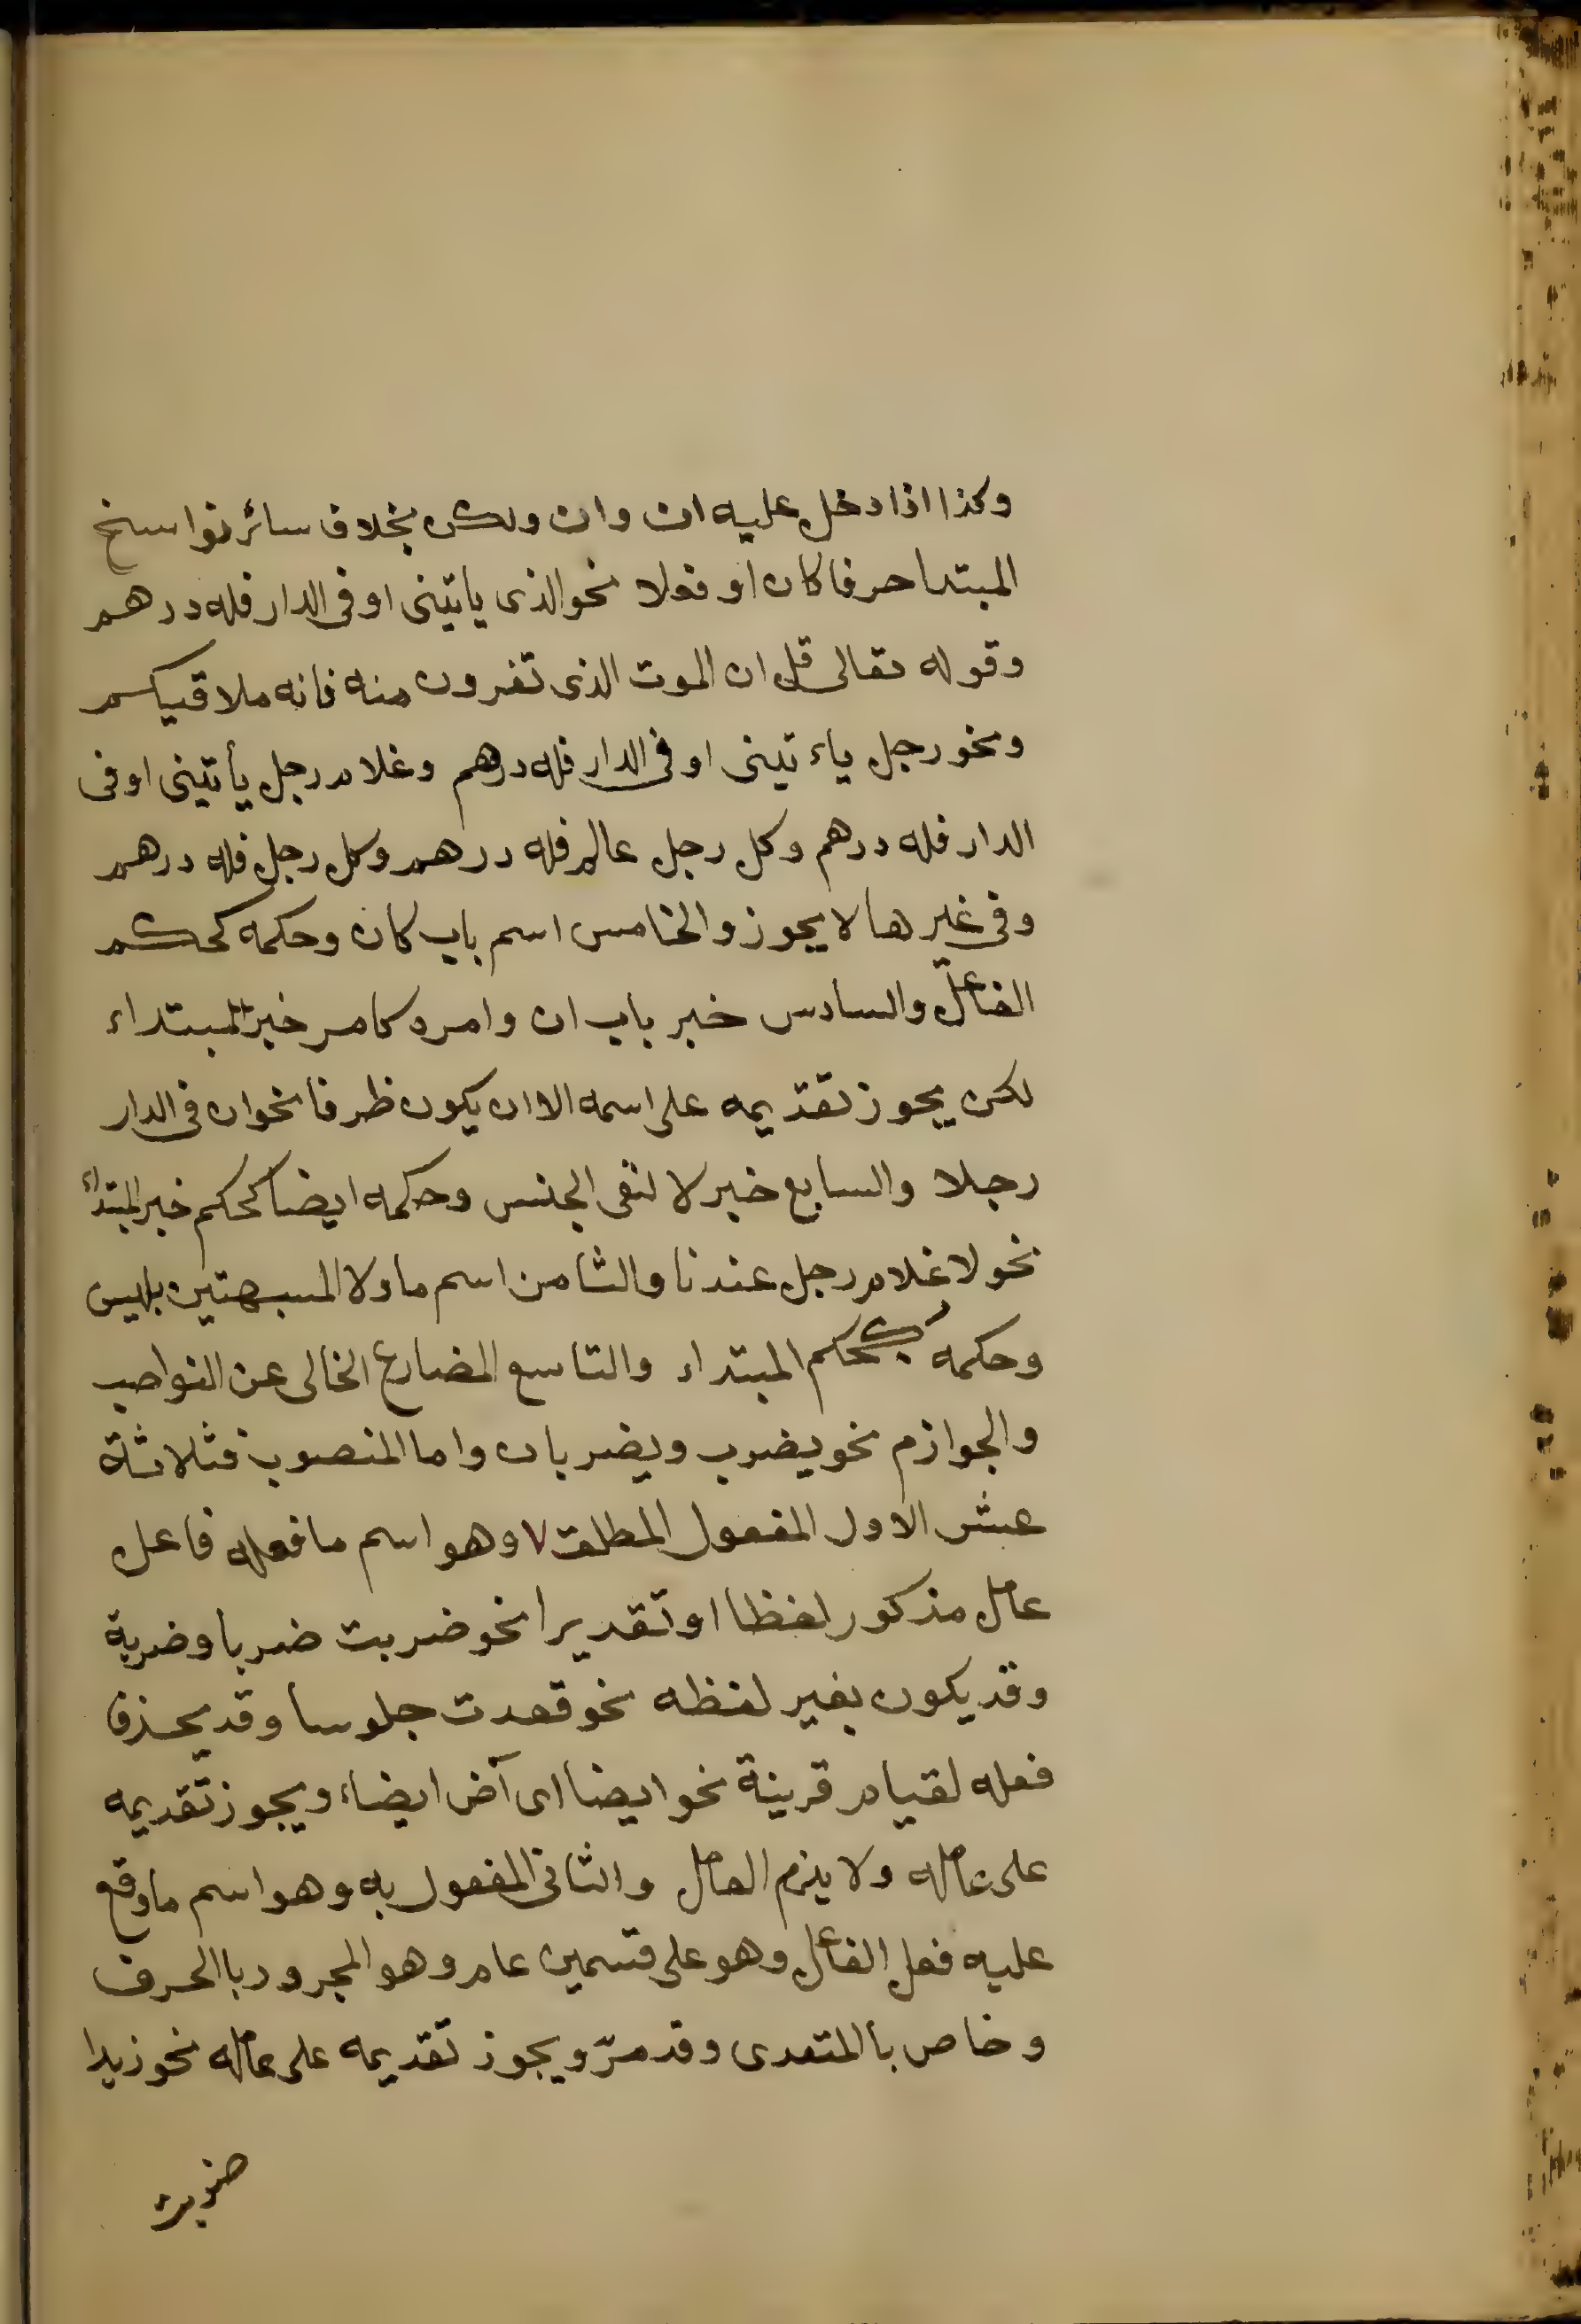 وكذا اذا دخل عليه ان وان ولكن بخلاف سائر نواسخ
المبتدا حرفا كان او فعلا نحو الذى ياتينى او فى الدار فله درهم
وقوله تعالى قل ان الموت الذى تفرون منه فانه ملاقيكم
ونحو رجل ياء تينى او فى الدار فله درهم وغلام رجل يأتينى او فى
الدار فله درهم وكل رجل عالم فله درهم وكل رجل فله درهم
وفى غيرها لا يجوز والخامس اسم باب كان وحكمه كحكم
الفاعل والسادس خبر باب ان وامره كامر خبر المبتداء
لكن يجوز تقديمه على اسمه الا ان يكون ظرفا نحو ان فى الدار
رجلا والسابع خبر لا لنفى الجنس وحكمه ايضا كحكم خبر المبتداء
نحو لا غلام رجل عندنا والثامن اسم ما ولا المسبهتين بليس
وحكمه كحكم المبتداء والتاسع المضارع الخالى عن النواصب
والجوازم نحو يضرب ويضربان واما المنصوب فثلاثة
عشر الاول المفعول المطلق وهو اسم ما فعله فاعل
عامل مذكور لفظا او تقديرا نحو ضربت ضربا وضربة
وقد يكون بغير لفظه نحو قعدت جلوسا وقد يحذف
فعله لقيام قرينة نحو ايضا اى آض ايضاء ويجوز تقديمه
على عامله ولا يلزم العامل والثانى المفعول به وهو اسم ما وقع
عليه فعل الفاعل وهو على قسمين عام وهو المجرور باالحرف
وخاص باالمتعدى وقد مرّ ويجوز تقديمه على عامله نحو زيدا
ضربت